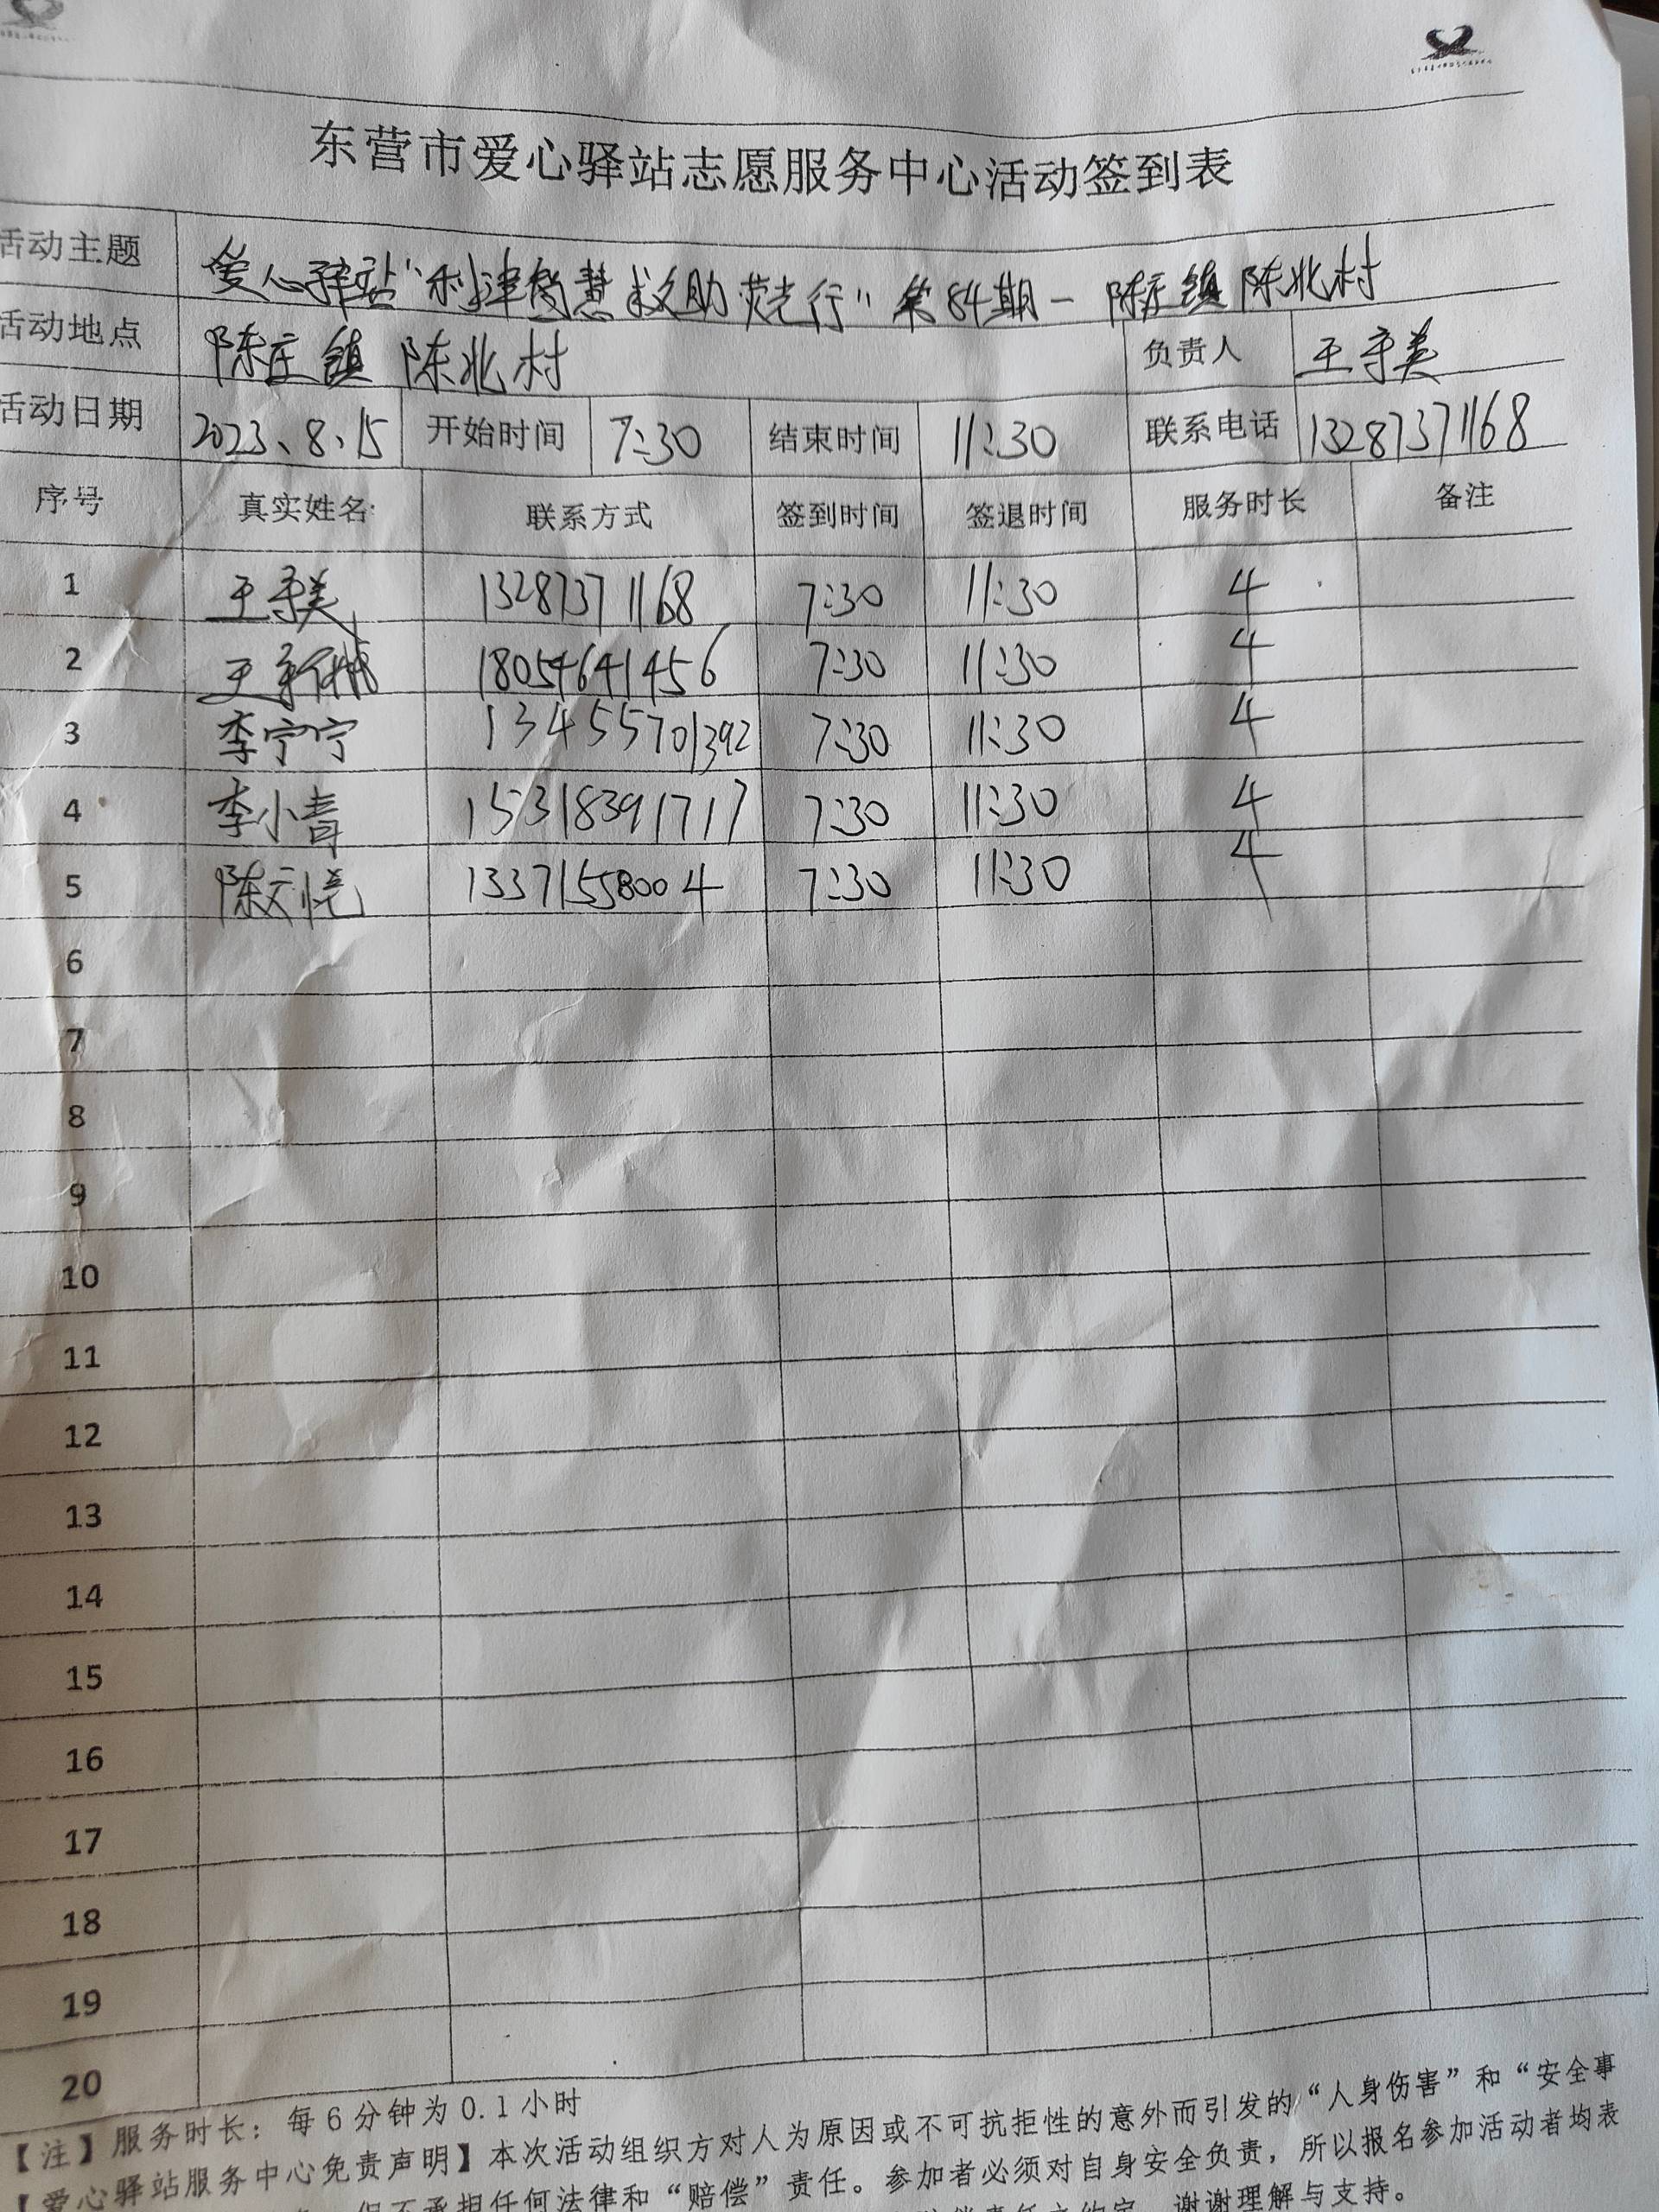 东营市爱心驿站志愿服务中心活动签到表
活动主题 爱心驿站“利津智慧救助荧光行”第84期-陈庄镇陈北村
活动地点 陈庄镇 陈北村 负责人 王守美
活动日期 2023、8、15 开始时间 7:30 结束时间 11:30 联系电话 13287371168
序号 真实姓名 联系方式 签到时间 签退时间 服务时长 备注
1 王守美 13287371168 7:30 11:30 4
2 18054641456 7:30 11:30 4
3 李宁宁 13455701392 7:30 11:30 4
4 李小青 15318391717 7:30 11:30 4
5 陈文悦 13371558004 7:30 11:30 4
6
7
8
9
10
11
12
13
14
15
16
17
18
19
20
【注】服务时长：每6分钟为0.1小时
【爱心驿站服务中心免责声明】本次活动组织方对人为原因或不可抗拒性的意外而引发的“人身伤害”和“安全事
但不承担任何法律和“赔偿”责任。参加者必须对自身安全负责，所以报名参加活动者均表
谢谢理解与支持。